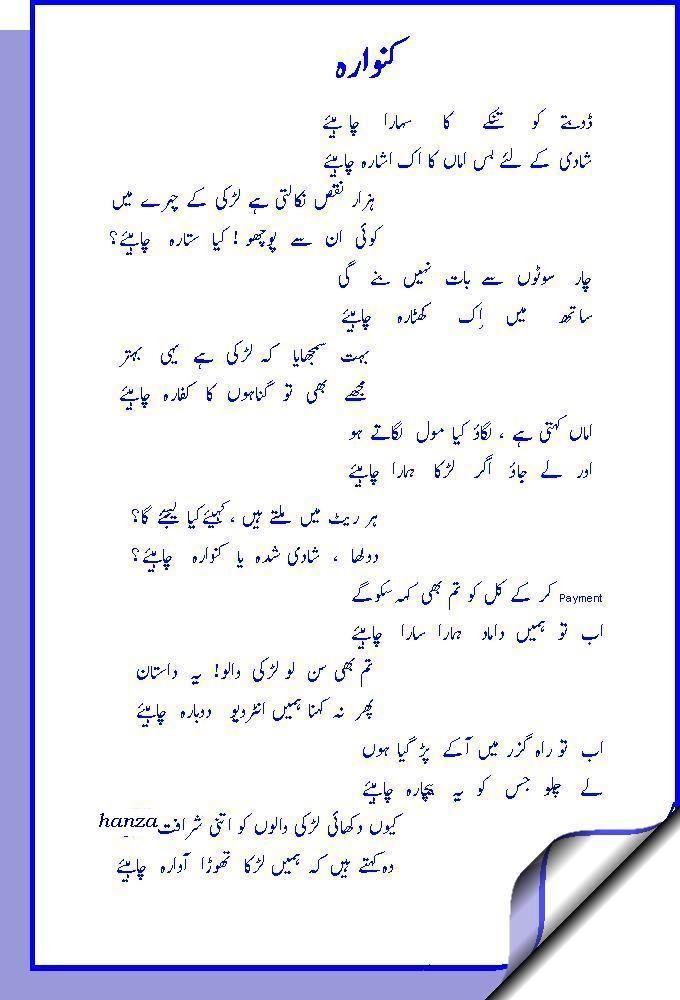 کنوارہ
ڈوبتے کو تنکے کا سہارا چاہیئے
شادی کے لئے بس اماں کا اک اشارہ چاہیئے
ہزار نقص نکالتی ہے لڑکی کے چہرے میں
کوئی ان سے پوچھو ! کیا ستارہ چاہیئے؟
چار سوٹوں سے بات نہیں بنے گی
ساتھ میں اِک کھٹارہ چاہیئے
بہت سمجھایا کہ لڑکی ہے یہی بہتر
مجھے بھی تو گناہوں کا کفارہ چاہیئے
اماں کہتی ہے ، لگاؤ کیا مول لگاتے ہو
اور لے جاؤ اگر لڑکا ہمارا چاہیئے
ہر ریٹ میں ملتے ہیں ، کہیئے کیا لیجئے گا؟
دولھا ، شادی شدہ یا کنوارہ چاہیئے؟
Payment کر کے کل کو تم بھی کہہ سکوگے
اب تو ہمیں داماد ہمارا سارا چاہیئے
تم بھی سن لو لڑکی والو! یہ داستان
پھر نہ کہنا ہمیں انٹرویو دوبارہ چاہیئے
اب تو راہ گزر میں آکے پڑ گیا ہوں
لے چلو جس کو یہ بیچارہ چاہیئے
کیوں دکھائی لڑکی والوں کو اتنی شرافت hanza
وہ کہتے ہیں کہ ہمیں لڑکا تھوڑا آوارہ چاہیئے